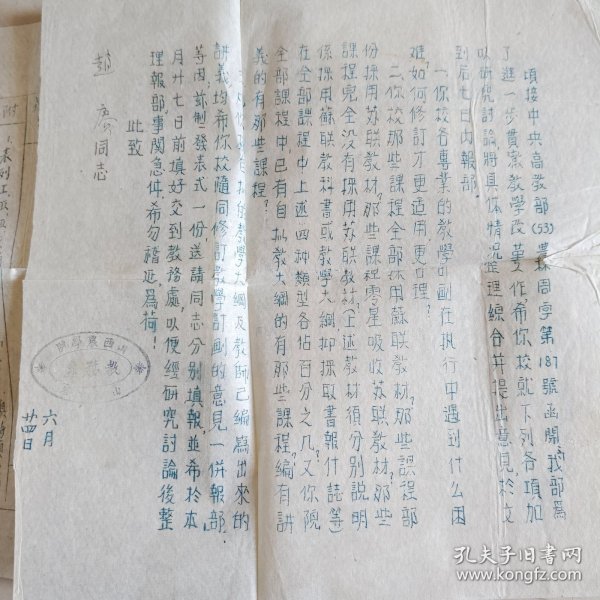 頃接中央高教部(53)農周字第187號函開「我部為
了進一步貫澈教學改革工作希你校就下列各項加
以研究討論將具体情況整理綜合并提出意見於文
到后七日内報部。
一、你校各專業的教學計劃在执行中遇到什么困
难?如何修訂才更适用更合理?
二、你校那些課程全部採用蘇联教材?那些課程部
份採用苏联教材?那些課程零星吸收苏联教材?那些
課程完全没有採用苏联教材(上述教材須分别說明
係採用蘇联教科書或教學大綱抑採取書報什誌等)
在全部課程中上述四种類型各佔百分之几?又你院
全部課程中已有自拟教學大綱的有那些課程?編有講
義的有那些課程?
三、凡你校自拟的教學大綱及教師已編寫出來的
講義均希你校隨同修訂教學計劃的意見一併報部」
等因,兹制發表式一份,送請同志分别填報,並希於本
月廿七日前填好交到教務處,以便經研究討論後整
理報部事関急件,希勿稽延為荷!
此致
趙 同志
六月
廿四日
山西農學院
附
孔夫子旧書网
www.kongfz.com